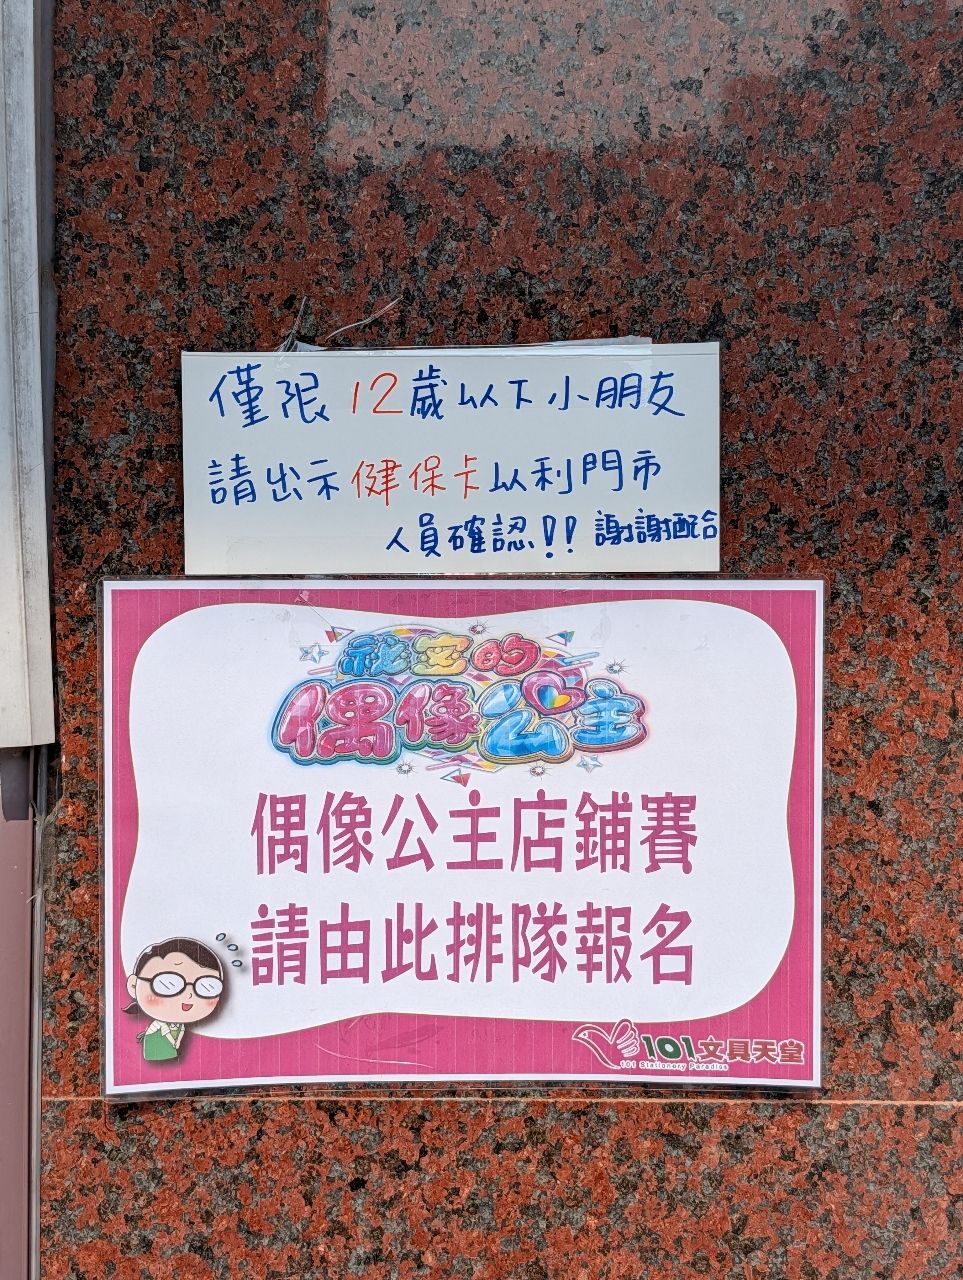 僅限 12歲以下小朋友
請出示健保卡以利門市
人員確認!! 謝謝配合
祕密的
偶像公主
偶像公主店鋪賽
請由此排隊報名
101文具天堂
101 Stationery Paradise